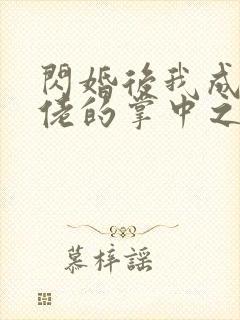 閃婚後我成
佬的掌中之
慕梓謠